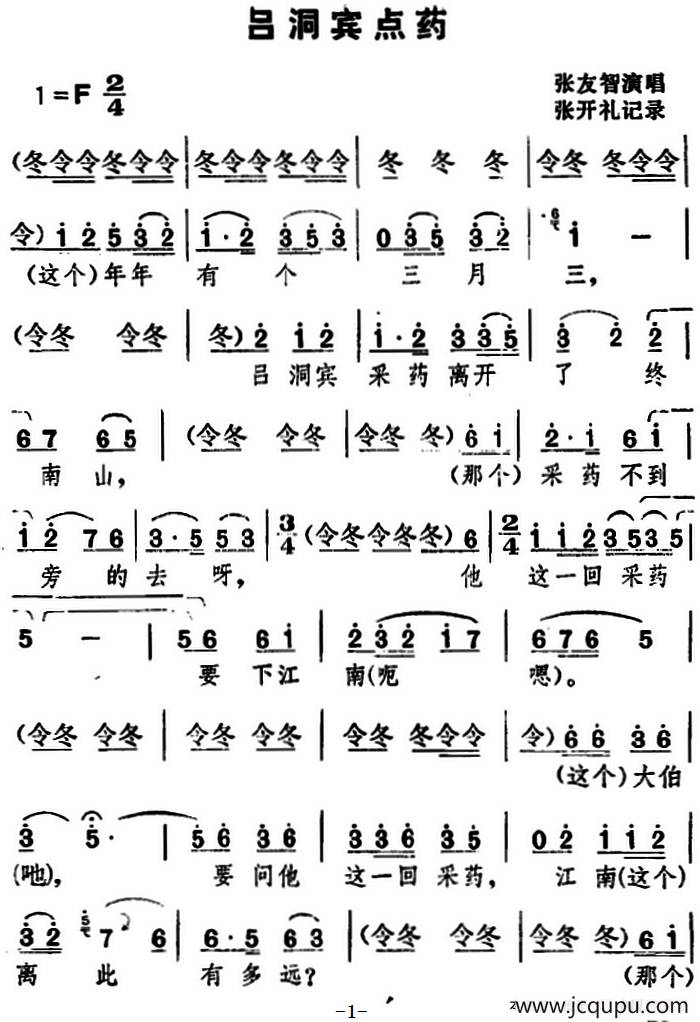 吕洞宾点药
1=F 2/4
张友智演唱
张开礼记录
(冬令令冬令令 | 冬令令冬令令 | 冬 冬 冬 | 令冬 冬令令 |
令) i 2 5 3 2 | i · 2 3 5 3 | 0 3 5 3 2 | 6 i — |
(这个)年年 有 个 三 月 三,
(令冬 令冬 | 冬) 2 i 2 | i · 2 3 3 5 | 3 2 2 |
吕 洞宾 采 药 离开 了 终
6 7 6 5 | (令冬 令冬 | 令冬 冬) 6 i | 2 · i 6 i |
南 山, (那个) 采 药 不到
i 2 7 6 | 3 · 5 5 3 | 3/4 (令冬令冬冬) 6 | 2/4 i i 2 3 5 3 5 |
旁 的 去 呀, 他 这一回 采药
5 — | 5 6 6 i | 2 3 2 i 7 | 6 7 6 5 |
要 下江 南(呃 嗯)。
(令冬 令冬 | 令冬 令冬 | 令冬 冬令令 | 令) 6 6 3 6 |
(这个)大伯
3 5 · | 5 6 3 6 | 3 3 6 3 5 | 0 2 i i 2 |
(吔), 要 问他 这一回 采药, 江 南(这个)
3 2 5 7 6 | 6 · 5 6 3 | (令冬 令冬 | 令冬 冬) 6 i |
离 此 有 多 远? (那个)
-1-
www.jcqupu.com